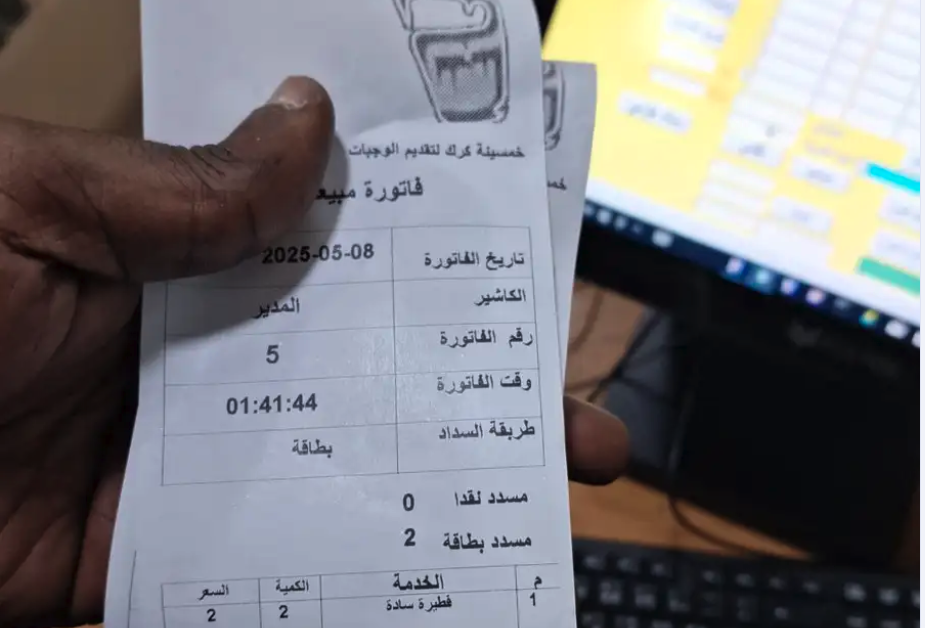 خمسينة كرك لتقديم الوجبات
فاتورة مبيع
تاريخ الفاتورة 2025-05-08
الكاشير المدير
رقم الفاتورة 5
وقت الفاتورة 01:41:44
طريقة السداد بطاقة
مسدد نقدا 0
مسدد بطاقة 2
م الخدمة الكمية السعر
1 فطيرة سادة 2 2